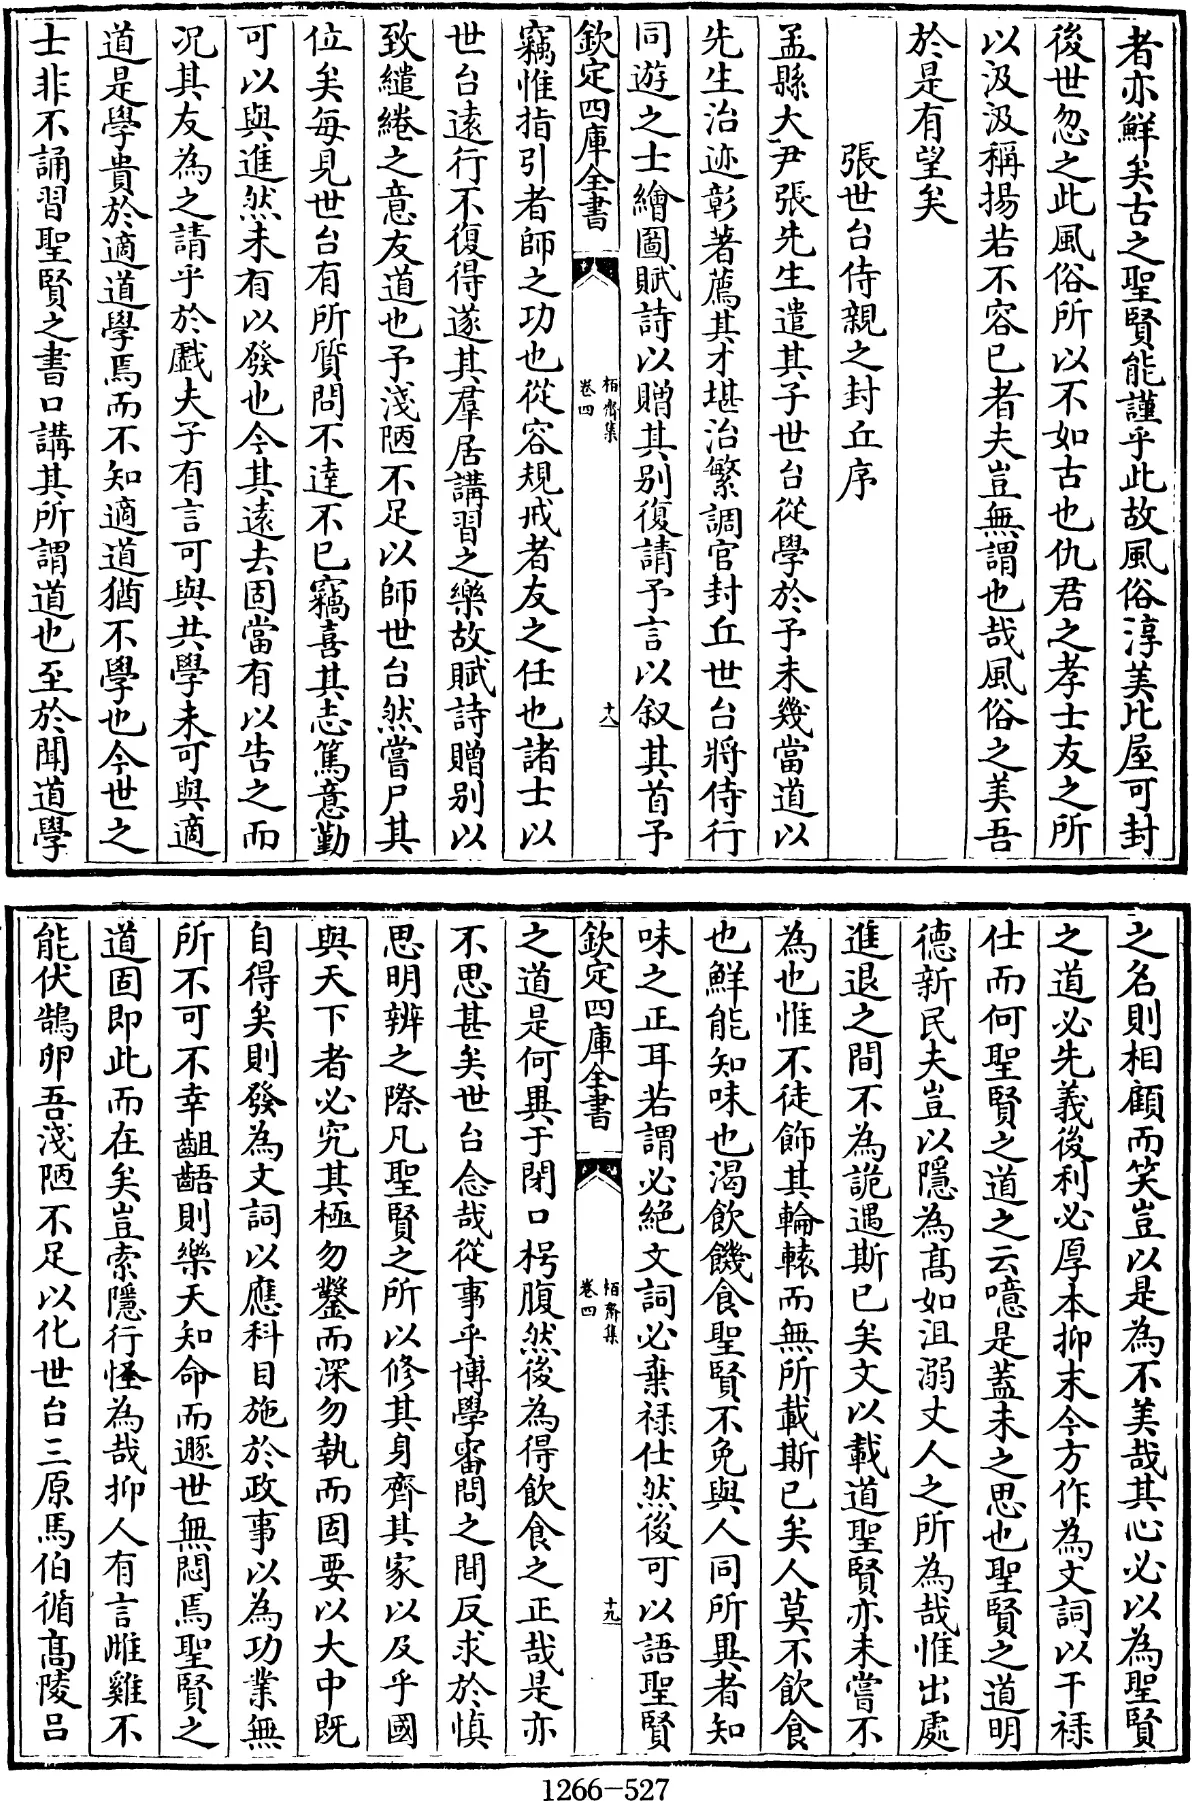 者亦鮮矣古之聖賢能謹乎此故風俗淳美比屋可封
後世忽之此風俗所以不如古也仇君之孝士友之所
以汲汲稱揚若不容已者夫豈無謂也哉風俗之美吾
於是有望矣
張世台侍親之封丘序
孟縣大尹張先生遣其子世台從學於予未幾當道以
先生治迹彰著薦其才堪治繁調官封丘世台將侍行
同遊之士繪圖賦詩以贈其别復請予言以叙其首予
欽定四庫全書
栢齋集
卷四
十八
竊惟指引者師之功也從容規戒者友之任也諸士以
世台遠行不復得遂其羣居講習之樂故賦詩贈别以
致繾綣之意友道也予淺陋不足以師世台然嘗尸其
位矣每見世台有所質問不達不已竊喜其志篤意勤
可以與進然未有以發也今其遠去固當有以告之而
况其友為之請乎於戲夫子有言可與共學未可與適
道是學貴於適道學焉而不知適道猶不學也今世之
士非不誦習聖賢之書口講其所謂道也至於聞道學
之名則相顧而笑豈以是為不美哉其心必以為聖賢
之道必先義後利必厚本抑末今方作為文詞以干禄
仕而何聖賢之道之云噫是蓋未之思也聖賢之道明
德新民夫豈以隱為高如沮溺丈人之所為哉惟出處
進退之間不為詭遇斯已矣文以載道聖賢亦未嘗不
為也惟不徒飾其輪轅而無所載斯已矣人莫不飲食
也鮮能知味也渴飲饑食聖賢不免與人同所異者知
味之正耳若謂必絶文詞必棄禄仕然後可以語聖賢
欽定四庫全書
栢齋集
卷四
十九
之道是何異于閉口枵腹然後為得飲食之正哉是亦
不思甚矣世台念哉從事乎博學審問之間反求於慎
思明辨之際凡聖賢之所以修其身齊其家以及乎國
與天下者必究其極勿鑿而深勿執而固要以大中既
自得矣則發為文詞以應科目施於政事以為功業無
所不可不幸齟齬則樂天知命而遯世無悶焉聖賢之
道固即此而在矣豈索隱行怪為哉抑人有言雌雞不
能伏鵠卵吾淺陋不足以化世台三原馬伯循高陵吕
1266-527